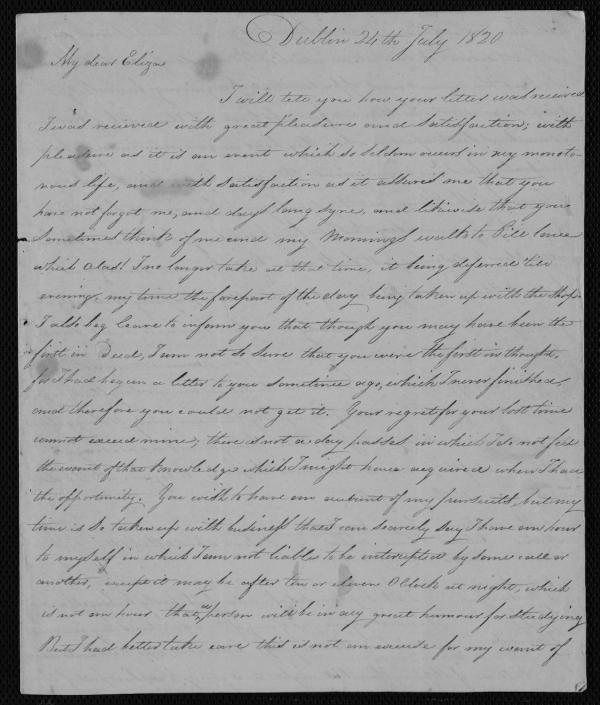 Dublin 24th July 1820
My dear Eliza
I will tell you how your letter was received
I was received with great pleasure and Satisfaction; with
pleasure as it is an event which so seldom occurs in my monoto-
nous life, and with Satisfaction as it assured me that you
have not forgot me, and days lang syne, and likewise that you
Sometimes think of me and my Mornings walks to Pill lane
which alas! I no longer take at that time, it being deferred 'till
evening, my time the forepart of the day being taken up with the Shop.
I also beg leave to inform you that though you may have been the
first in Deed, I am not so sure that you were the first in thought,
for I had began a letter to you sometime ago, which I never finished
and therefore you could not get it. Your regret for your lost time
cannot exceed mine, there is not a day passes in which I do not feel
the want of that Knowledge which I might have acquired when I had
the opportunity. You wish to have an account of my pursuits, but my
time is so taken up with business that I can scarcely say I have an hour
to myself in which I am not liable to be intercepted by some call or
another, except it may be after ten or eleven O'Clock at night, which
is not an hour that a person will be in any great humour for studying
But I had better take care this is not an excuse for my want of